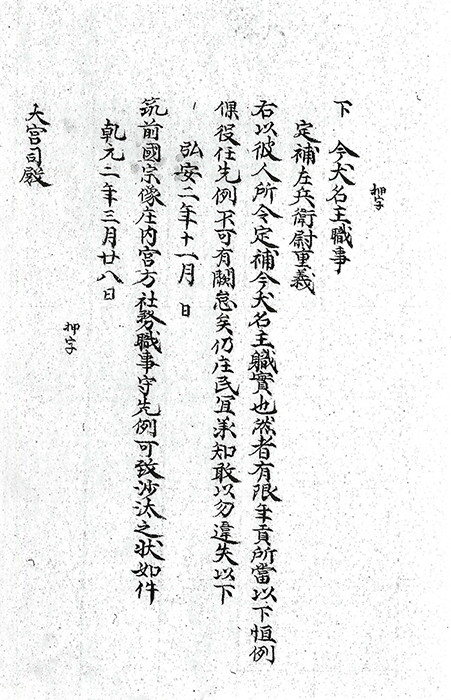 押字
下　今犬名主職事
定補左兵衛尉重義
右以彼人所令定補今犬名主職實也然者有限年貢所當以下恒例
保役任先例不可有闕怠矣仍庄民冝承知敢以勿違失以下
弘安二年十一月　日
筑前國宗像庄内宮方社務職事守先例可致沙汰之状如件
乹元二年三月廿八日
押字
大宮司殿